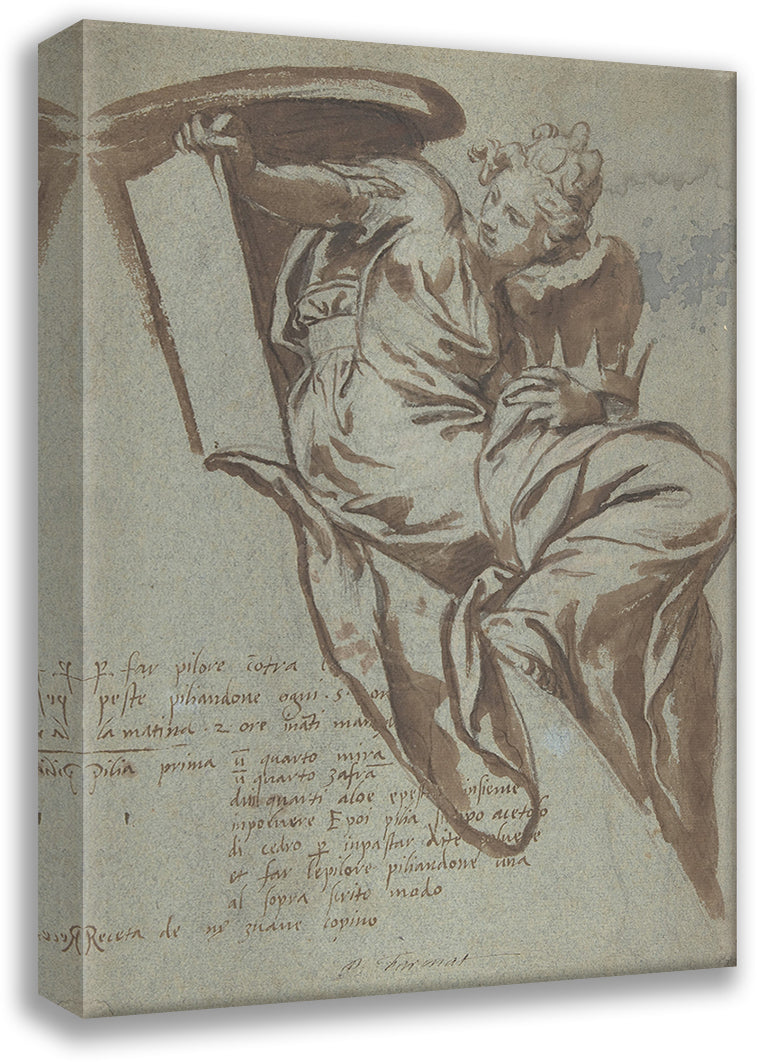 p far pilore cōtra
peste piliandone ogni · 5 · or
la matina · 2 ore māti man
pilia prima ū quarto mira
ū quarto zafrā
duj quarti aloe epest insieme
inpoluere E poi pilia siropo acetoso
di cedro p inpastar dite poluere
et far le pilore piliandone una
al sopra scrito modo
Receta de zuane copino